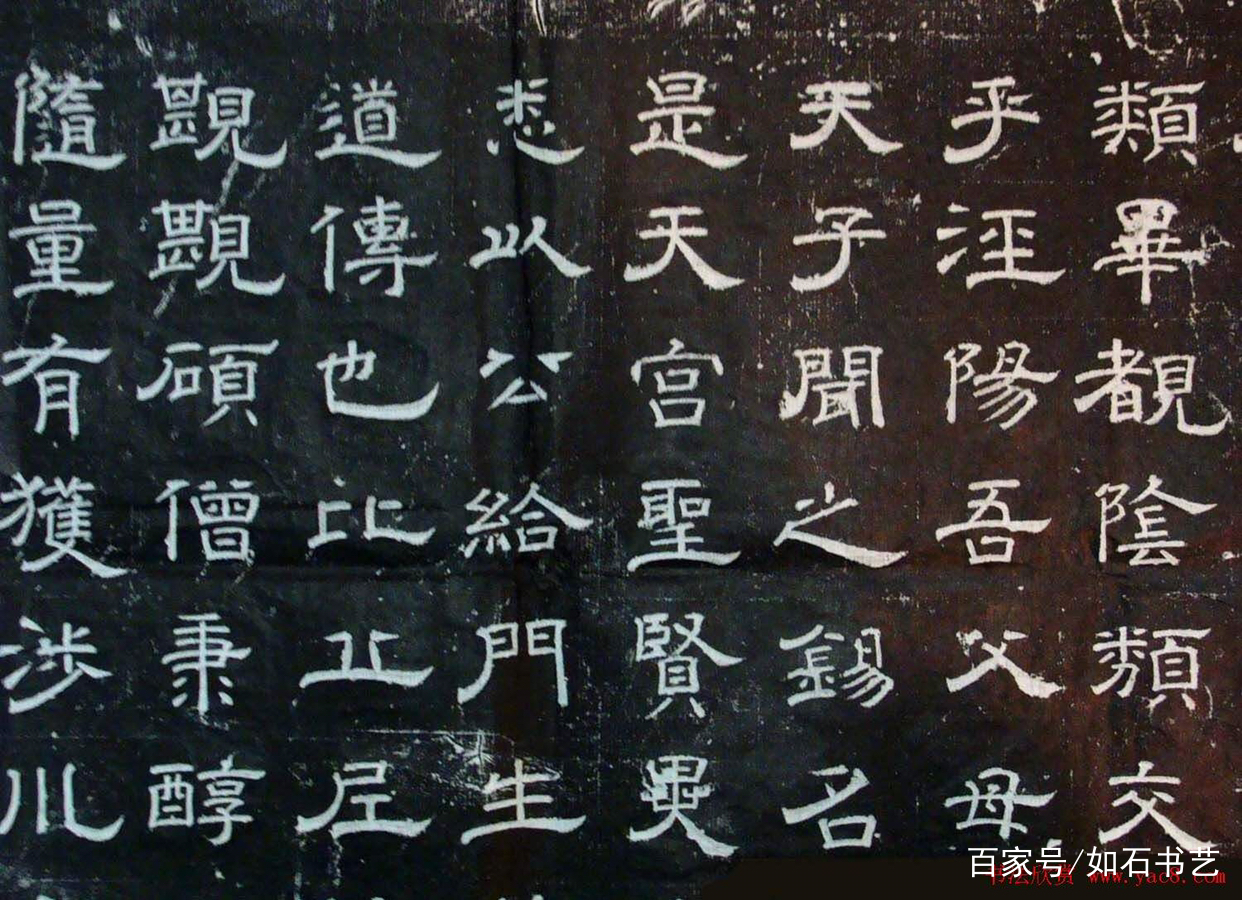 類畢覩陰類交
乎涇陽吾父母
天子聞之錫名
是天宫聖賢
悉以公給門生
道傳也比丘尼
碩僧秉醇
隨量有獲涉川
百家号/如石书艺
书法欣赏 www.yac8.com